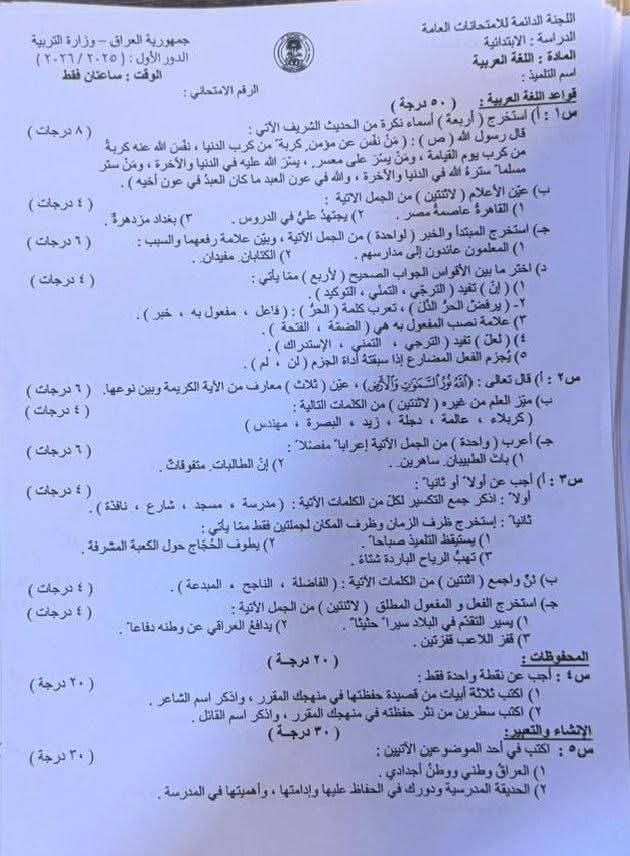 اللجنة الدائمة للامتحانات العامة
الدراسة : الإبتدائية
المادة : اللغة العربية
اسم التلميذ :
جمهورية العراق – وزارة التربية
الدور الأول : ( ٢٠٢٥ / ٢٠٢٦ )
الوقت : ساعتان فقط
الرقم الامتحاني :
قواعد اللغة العربية : ( ٥٠ درجة )
س١ : أ) استخرج ( أربعة ) أسماء نكرة من الحديث الشريف الآتي : ( ٨ درجات )
قال رسول الله ( ص ) : ( مَنْ نفّس عن مؤمنٍ كربةً من كرب الدنيا ، نفّسَ الله عنه كربةً
من كرب يوم القيامة ، ومَنْ يسرّ على معسرٍ ، يسرّ الله عليه في الدنيا والآخرة ، ومَنْ ستر
مسلماً سترهُ الله في الدنيا والآخرة ، والله في عون العبد ما كان العبدُ في عون أخيه ) .
ب) عيّن الأعلام ( لاثنتين ) من الجمل الآتية : ( ٤ درجات )
١) القاهرة عاصمة مصر . ٢) يجتهدُ عليٌ في الدروس . ٣) بغداد مزدهرةٌ .
جـ) استخرج المبتدأ والخبر ( لواحدة ) من الجمل الآتية ، وبيّن علامة رفعهما والسبب : ( ٦ درجات )
١) المعلمون عائدون إلى مدارسهم . ٢) الكتابان مفيدان .
د) اختر ما بين الأقواس الجواب الصحيح ( لأربع ) ممّا يأتي : ( ٤ درجات )
١) ( إنّ ) تفيد ( الترجّي ، التمني ، التوكيد ) .
٢- ( يرفضُ الحرُّ الذُلّ ) ، تعرب كلمة ( الحرُّ ) : ( فاعل ، مفعول به ، خبر ) .
٣) علامة نصب المفعول به هي ( الضمّة ، الفتحة ) .
٤) ( لعلّ ) تفيد ( الترجي ، التمني ، الإستدراك ) .
٥) يُجزم الفعل المضارع إذا سبقتهُ أداة الجزم ( لن ، لم ) .
س٢ : أ) قال تعالى : ﴿اللَّهُ نُورُ السَّمَوَتِ وَالْأَرْضِ﴾ ، عيّن ( ثلاث ) معارف من الآية الكريمة وبين نوعها. ( ٦ درجات )
ب) ميّز العلم من غيره ( لاثنتين ) من الكلمات التالية : ( ٤ درجات )
( كربلاء ، عالمة ، دجلة ، زيد ، البصرة ، مهندس )
جـ) أعرب ( واحدة ) من الجمل الآتية إعراباً مفصّلاً : ( ٦ درجات )
١) باتَ الطبيبان ساهرين . ٢) إنّ الطالبات متفوقاتٌ .
س٣ : أ) أجب عن أولاً أو ثانياً : ( ٤ درجات )
أولاً : اذكر جمع التكسير لكلٍ من الكلمات الآتية : ( مدرسة ، مسجد ، شارع ، نافذة ) .
ثانياً : إستخرج ظرف الزمان وظرف المكان لجملتين فقط ممّا يأتي :
١) يستيقظُ التلميذ صباحاً . ٢) يطوف الحُجّاج حول الكعبة المشرفة .
٣) تهبُّ الرياح الباردة شتاءً .
ب) ثنِّ واجمع ( اثنتين ) من الكلمات الآتية : ( الفاضلة ، الناجح ، المبدعة ) . ( ٤ درجات )
جـ) استخرج الفعل و المفعول المطلق ( لاثنتين ) من الجمل الآتية : ( ٤ درجات )
١) يسير التقدّم في البلاد سيراً حثيثاً . ٢) يدافعُ العراقي عن وطنه دفاعاً .
٣) قفز اللاعب قفزتين .
المحفوظات : ( ٢٠ درجـة )
س٤ : أجب عن نقطة واحدة فقط : ( ٢٠ درجة )
١) اكتب ثلاثة أبيات من قصيدة حفظتها في منهجك المقرر ، واذكر اسم الشاعر .
٢) اكتب سطرين من نثر حفظته في منهجك المقرر ، واذكر اسم القائل .
الإنشاء والتعبير: ( ٣٠ درجـة )
س٥ : اكتب في أحد الموضوعين الآتيين : ( ٣٠ درجة )
١) العراقُ وطني ووطنُ أجدادي .
٢) الحديقة المدرسية ودورك في الحفاظ عليها وإدامتها ، وأهميتها في المدرسة .